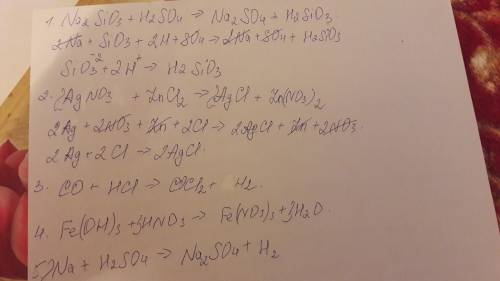 1. Na2SiO3 + H2SO4 → Na2SO4 + H2SiO3.
2Na + SiO3 + 2H + SO4 → 2Na + SO4 + H2SiO3
SiO3^-2 + 2H^+ → H2SiO3
2. 2AgNO3 + ZnCl2 → 2AgCl + Zn(NO3)2
2Ag + 2NO3 + Zn + 2Cl → 2AgCl + Zn + 2NO3.
2Ag + 2Cl → 2AgCl.
3. CO + HCl → Cl2 + H2.
4. Fe(OH)3 + 3HNO3 → Fe(NO3)3 + 3H2O.
5) 2Na + H2SO4 → Na2SO4 + H2